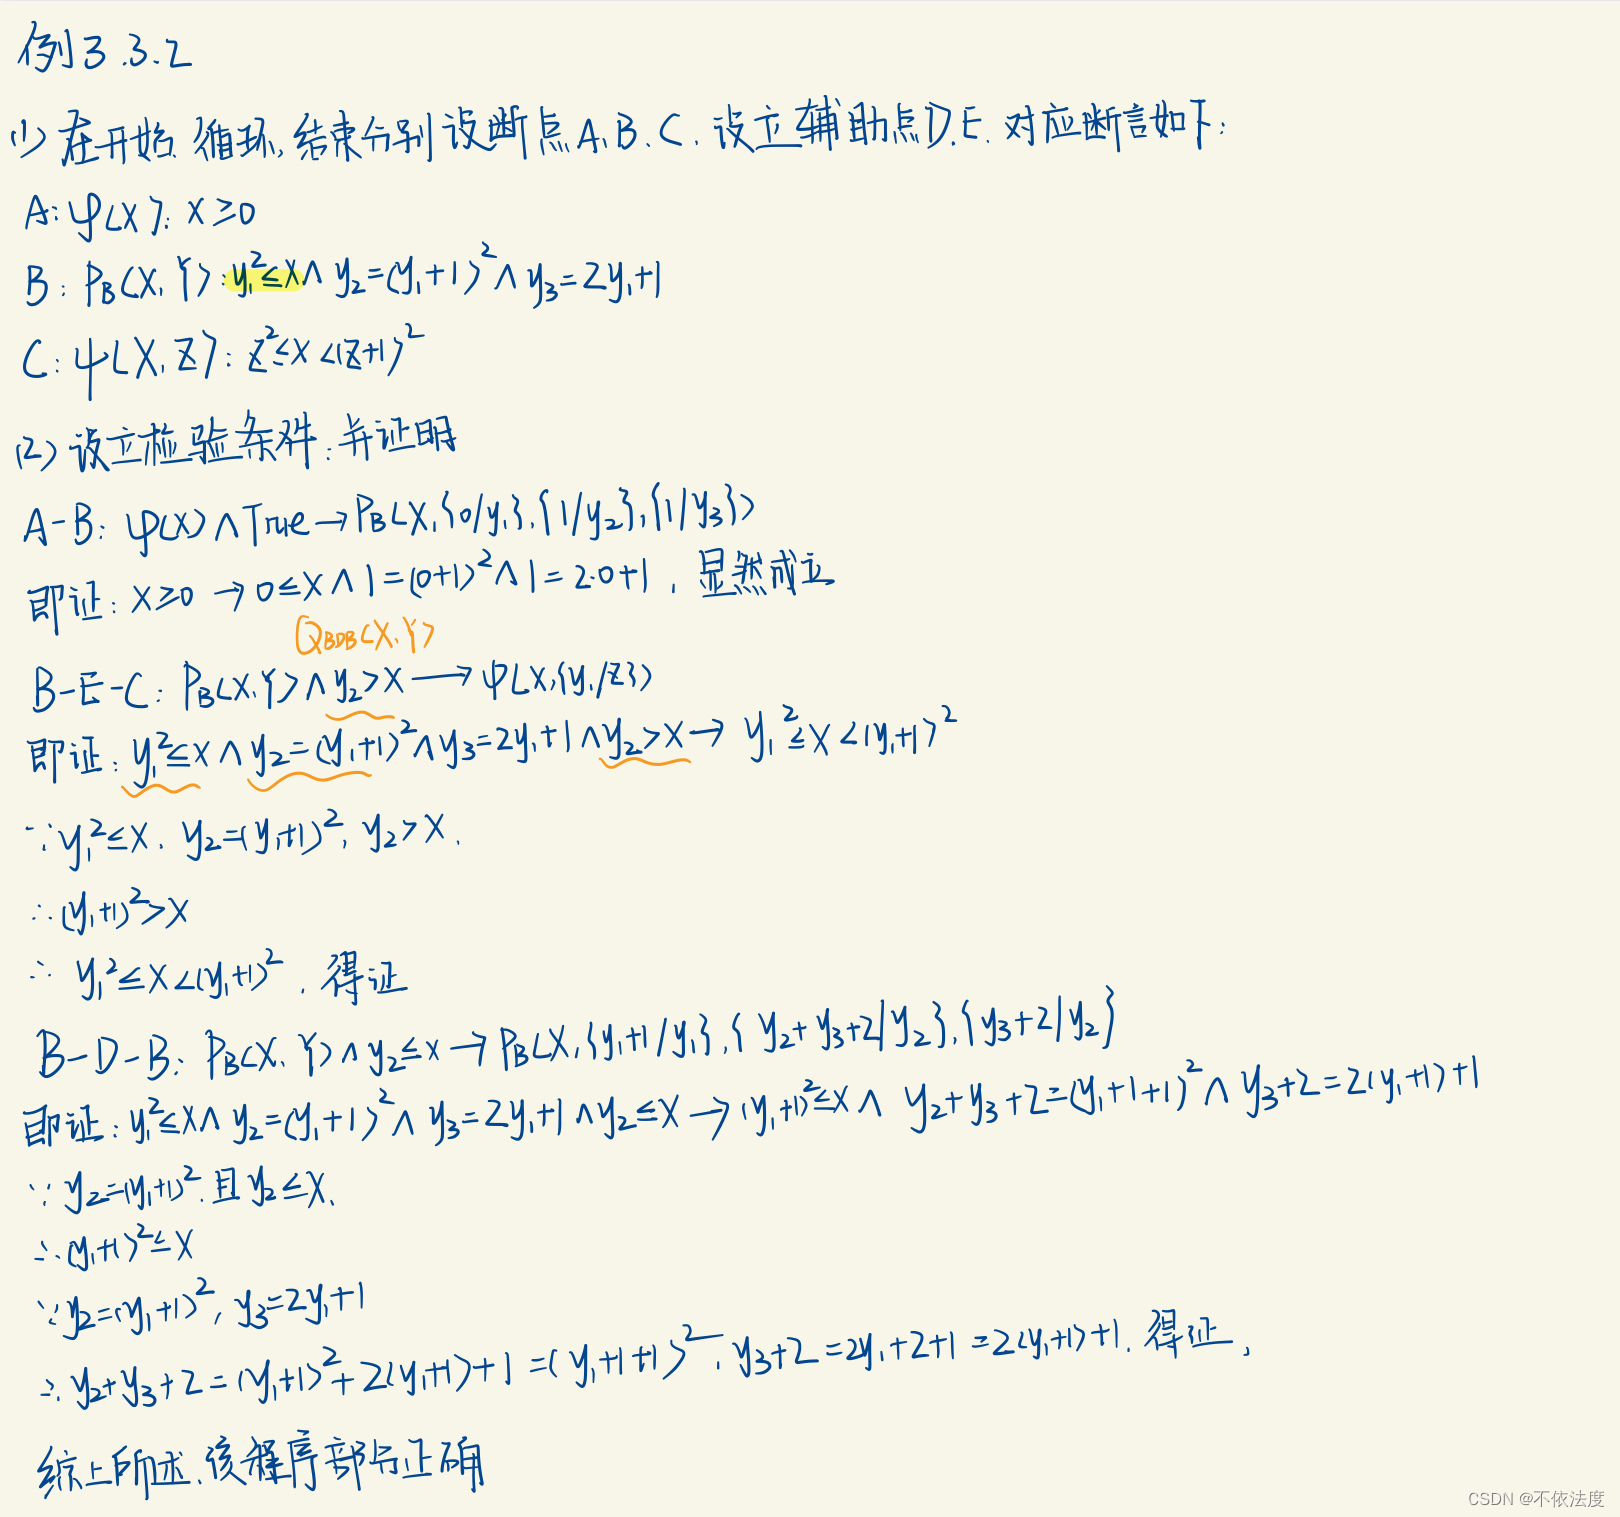 例3.3.2
(1) 在开始、循环、结束分别设断点A、B、C. 设立辅助点D.E. 对应断言如下:
A: φ(X): x≥0
B: P_B(X,Y): y₁²≤x∧y₂=(y₁+1)²∧y₃=2y₁+1
C: ψ(X,Z): z²≤x<(z+1)²
(2) 设立检验条件:并证明
A-B: φ(X)∧True→P_B(X,{0/y₁},{1/y₂},{1/y₃})
即证: x≥0 → 0≤x∧1=(0+1)²∧1=2·0+1, 显然成立
Q_BDB(X,Y)
B-E-C: P_B(X,Y)∧y₂>x→ψ(X,{y₁/z})
即证: y₁²≤x∧y₂=(y₁+1)²∧y₃=2y₁+1∧y₂>x→ y₁²≤x<(y₁+1)²
∵y₁²≤x, y₂=(y₁+1)², y₂>x.
∴(y₁+1)²>x
∴ y₁²≤x<(y₁+1)². 得证
B-D-B: P_B(X,Y)∧y₂≤x→P_B(X,{y₁+1/y₁},{y₂+y₃+2/y₂},{y₃+2/y₂}
即证: y₁²≤x∧y₂=(y₁+1)²∧y₃=2y₁+1∧y₂≤x→(y₁+1)²≤x∧ y₂+y₃+2=(y₁+1+1)²∧y₃+2=2(y₁+1)+1
∵ y₂=(y₁+1)².且y₂≤x.
∴(y₁+1)²≤x
∵y₂=(y₁+1)², y₃=2y₁+1
∴y₂+y₃+2=(y₁+1)²+2(y₁+1)+1=(y₁+1+1)², y₃+2=2y₁+2+1=2(y₁+1)+1. 得证,
综上所述,该程序部分正确
CSDN @不依法度